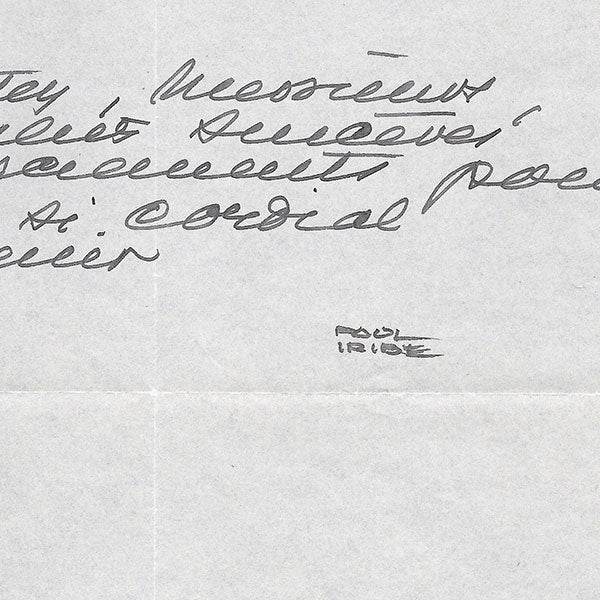 tez, Messieurs,
sincères
rciements pour
si cordial
enir
PAUL
IRIBE